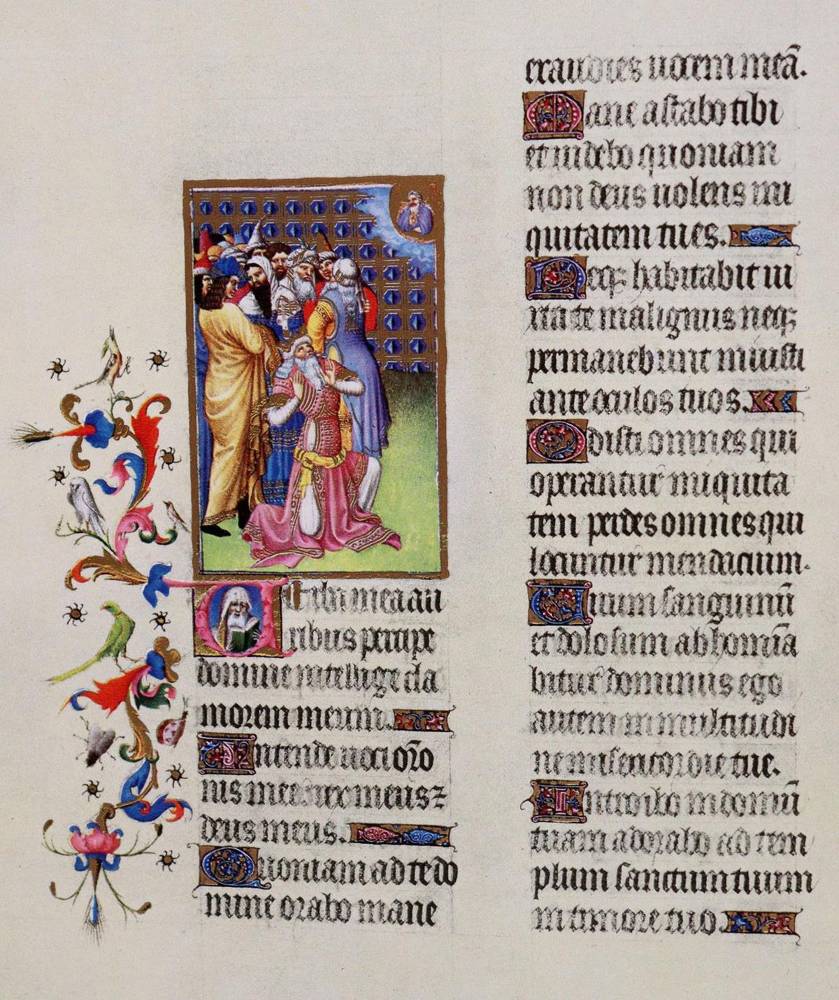 Verba mea au
ribus percipe
domine intellige cla
morem meum.
Intende voci oro
nis mee rex meus ⁊
deus meus.
Quoniam ad te do
mine orabo mane
exaudies vocem meā.
Mane astabo tibi
et videbo quoniam
non deus volens ini
quitatem tu es.
Neq; habitabit iu
xta te malignus neq;
permanebunt iniusti
ante oculos tuos.
Odisti omnes qui
operantur iniquita
tem perdes omnes qui
locuntur mendacium.
Virum sanguinū
et dolosum abhomīa
bitur dominus ego
autem in multitudi
ne misericordie tue.
Introibo in domū
tuam adorabo ad tem
plum sanctum tuum
in timore tuo.